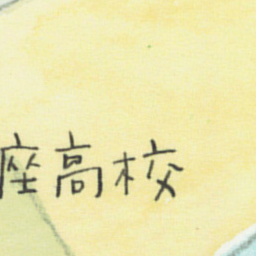 座高校